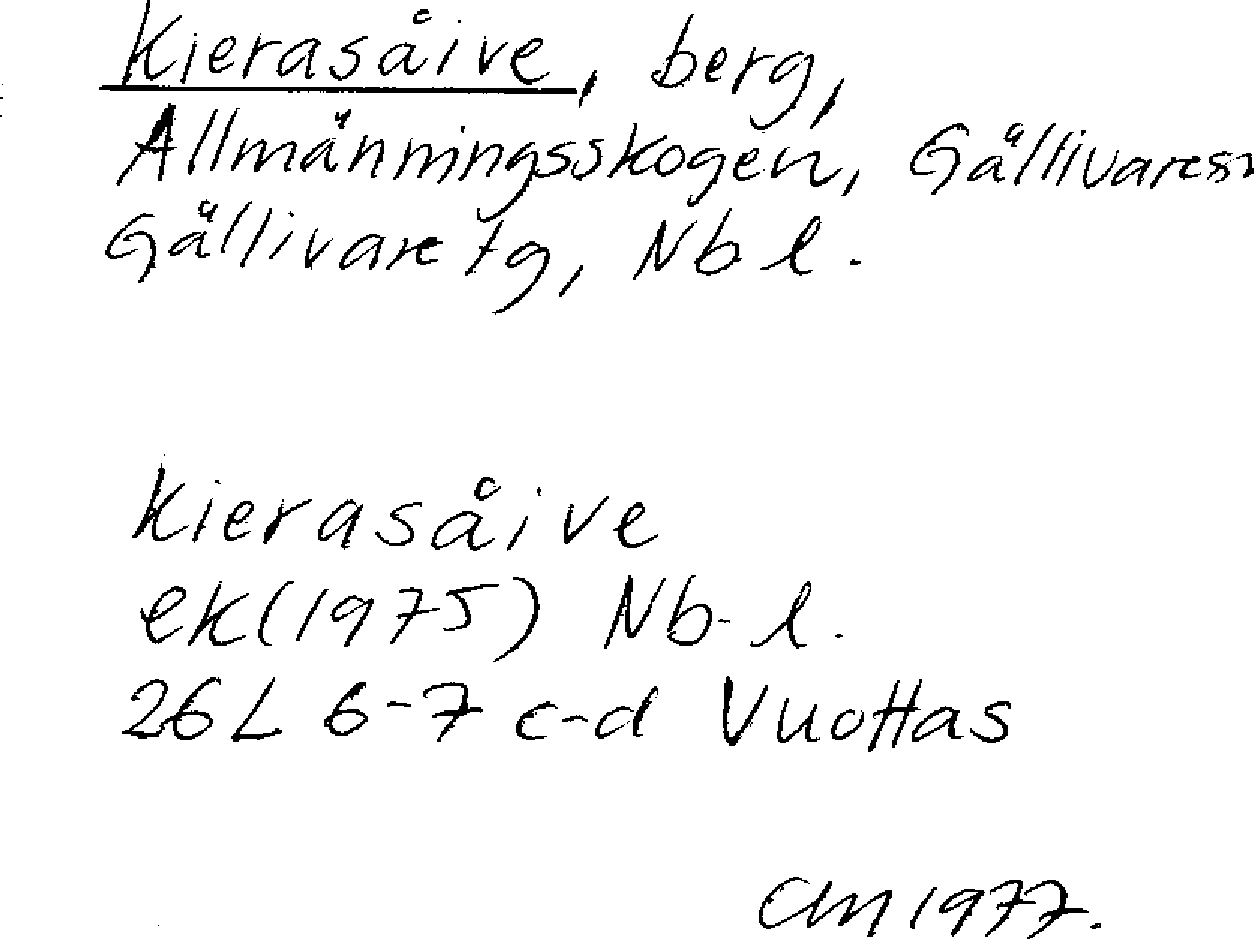 Kierasåive, berg,
Allmänningsskogen, Gällivaresn
Gällivare tg, Nb l.
Kierasåive
ek(1975) Nb. l.
26L 6-7 c-d Vuottas
CM 1977.